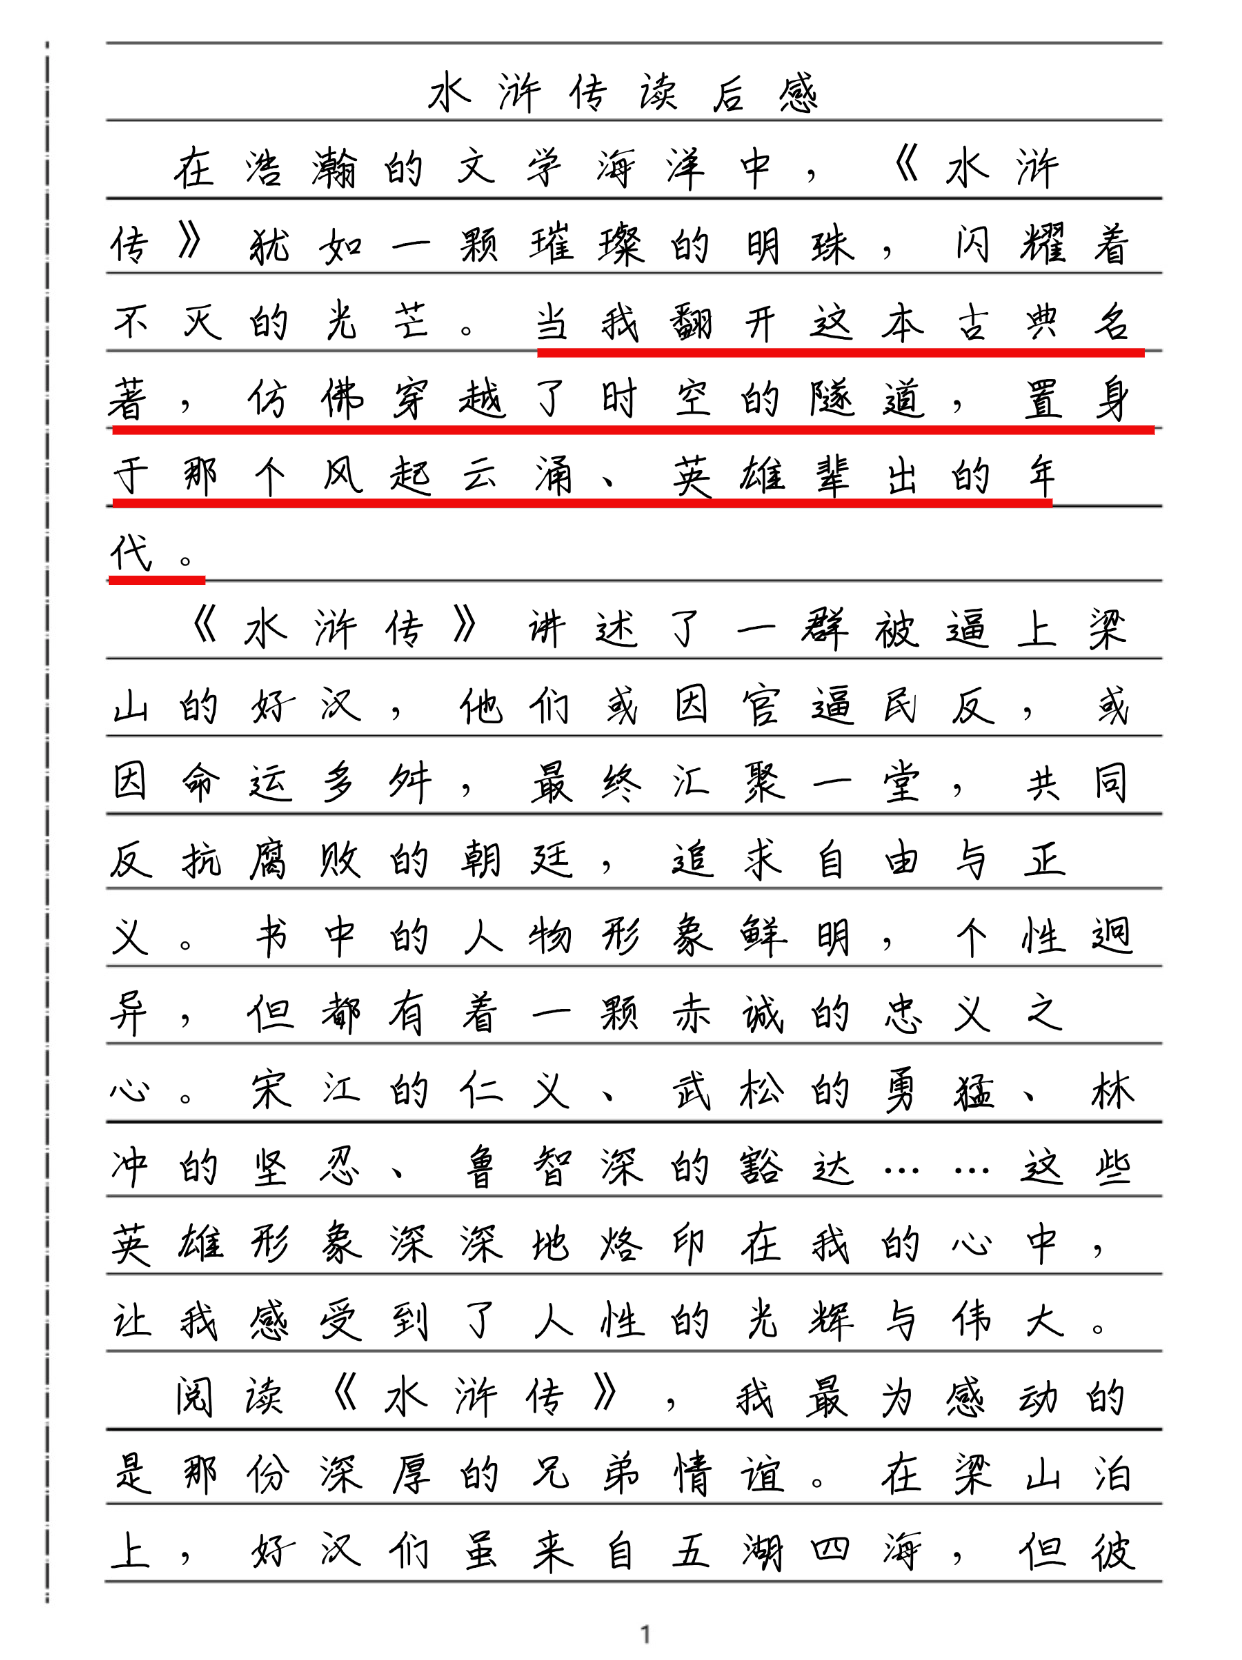 水浒传读后感
在浩瀚的文学海洋中，《水浒
传》犹如一颗璀璨的明珠，闪耀着
不灭的光芒。当我翻开这本古典名
著，仿佛穿越了时空的隧道，置身
于那个风起云涌、英雄辈出的年
代。
《水浒传》讲述了一群被逼上梁
山的好汉，他们或因官逼民反，或
因命运多舛，最终汇聚一堂，共同
反抗腐败的朝廷，追求自由与正
义。书中的人物形象鲜明，个性迥
异，但都有着一颗赤诚的忠义之
心。宋江的仁义、武松的勇猛、林
冲的坚忍、鲁智深的豁达……这些
英雄形象深深地烙印在我的心中，
让我感受到了人性的光辉与伟大。
阅读《水浒传》，我最为感动的
是那份深厚的兄弟情谊。在梁山泊
上，好汉们虽来自五湖四海，但彼
1